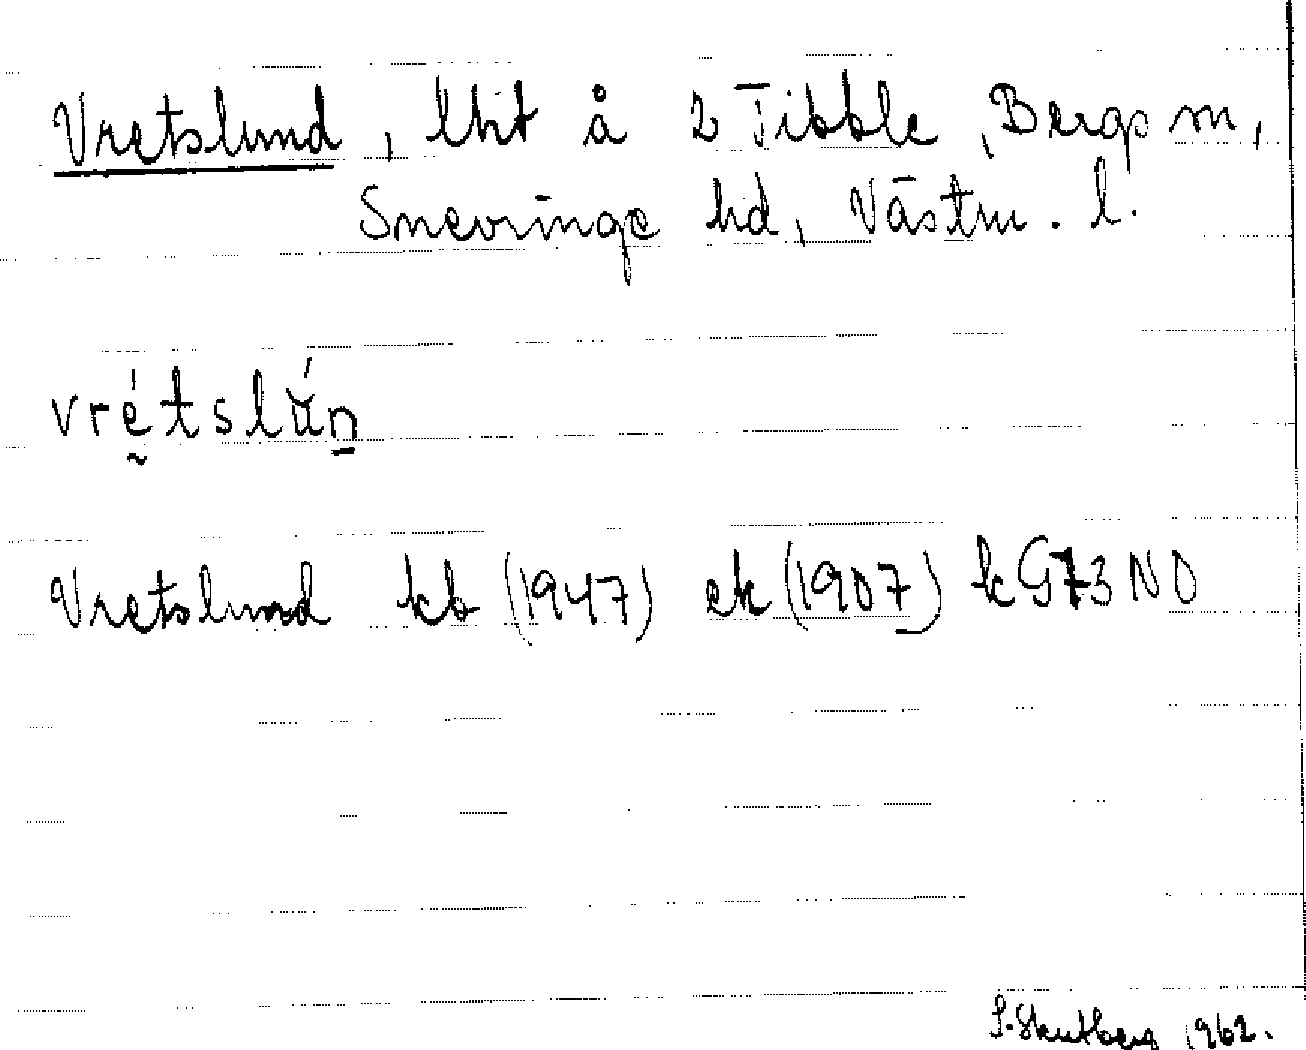 Vretslund, lht å 2 Tibble, Bergs sn,
Snevringe hd, Västm. l.
vrétslún
Vretslund kb (1947) ek (1907) k G73 NO
S. Skutberg 1962.